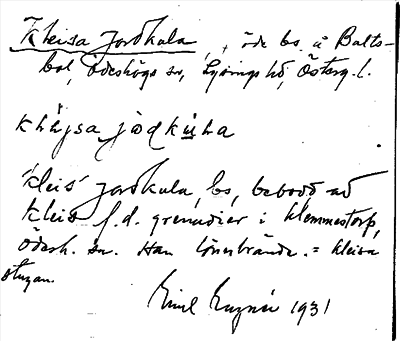 Kleisa jordkula, + öde bs. å Balts-
bol, Ödeshögs sn, Lysings hd, Österg. l.
khläjsa jodkuha
"Kleis" jordkula, bs, bebodd av
Kleis f.d. grenadier i Klemmestorp,
Ödesh. sn. Han lönnbrände. = Kleisa
stugan.
Emil 1931